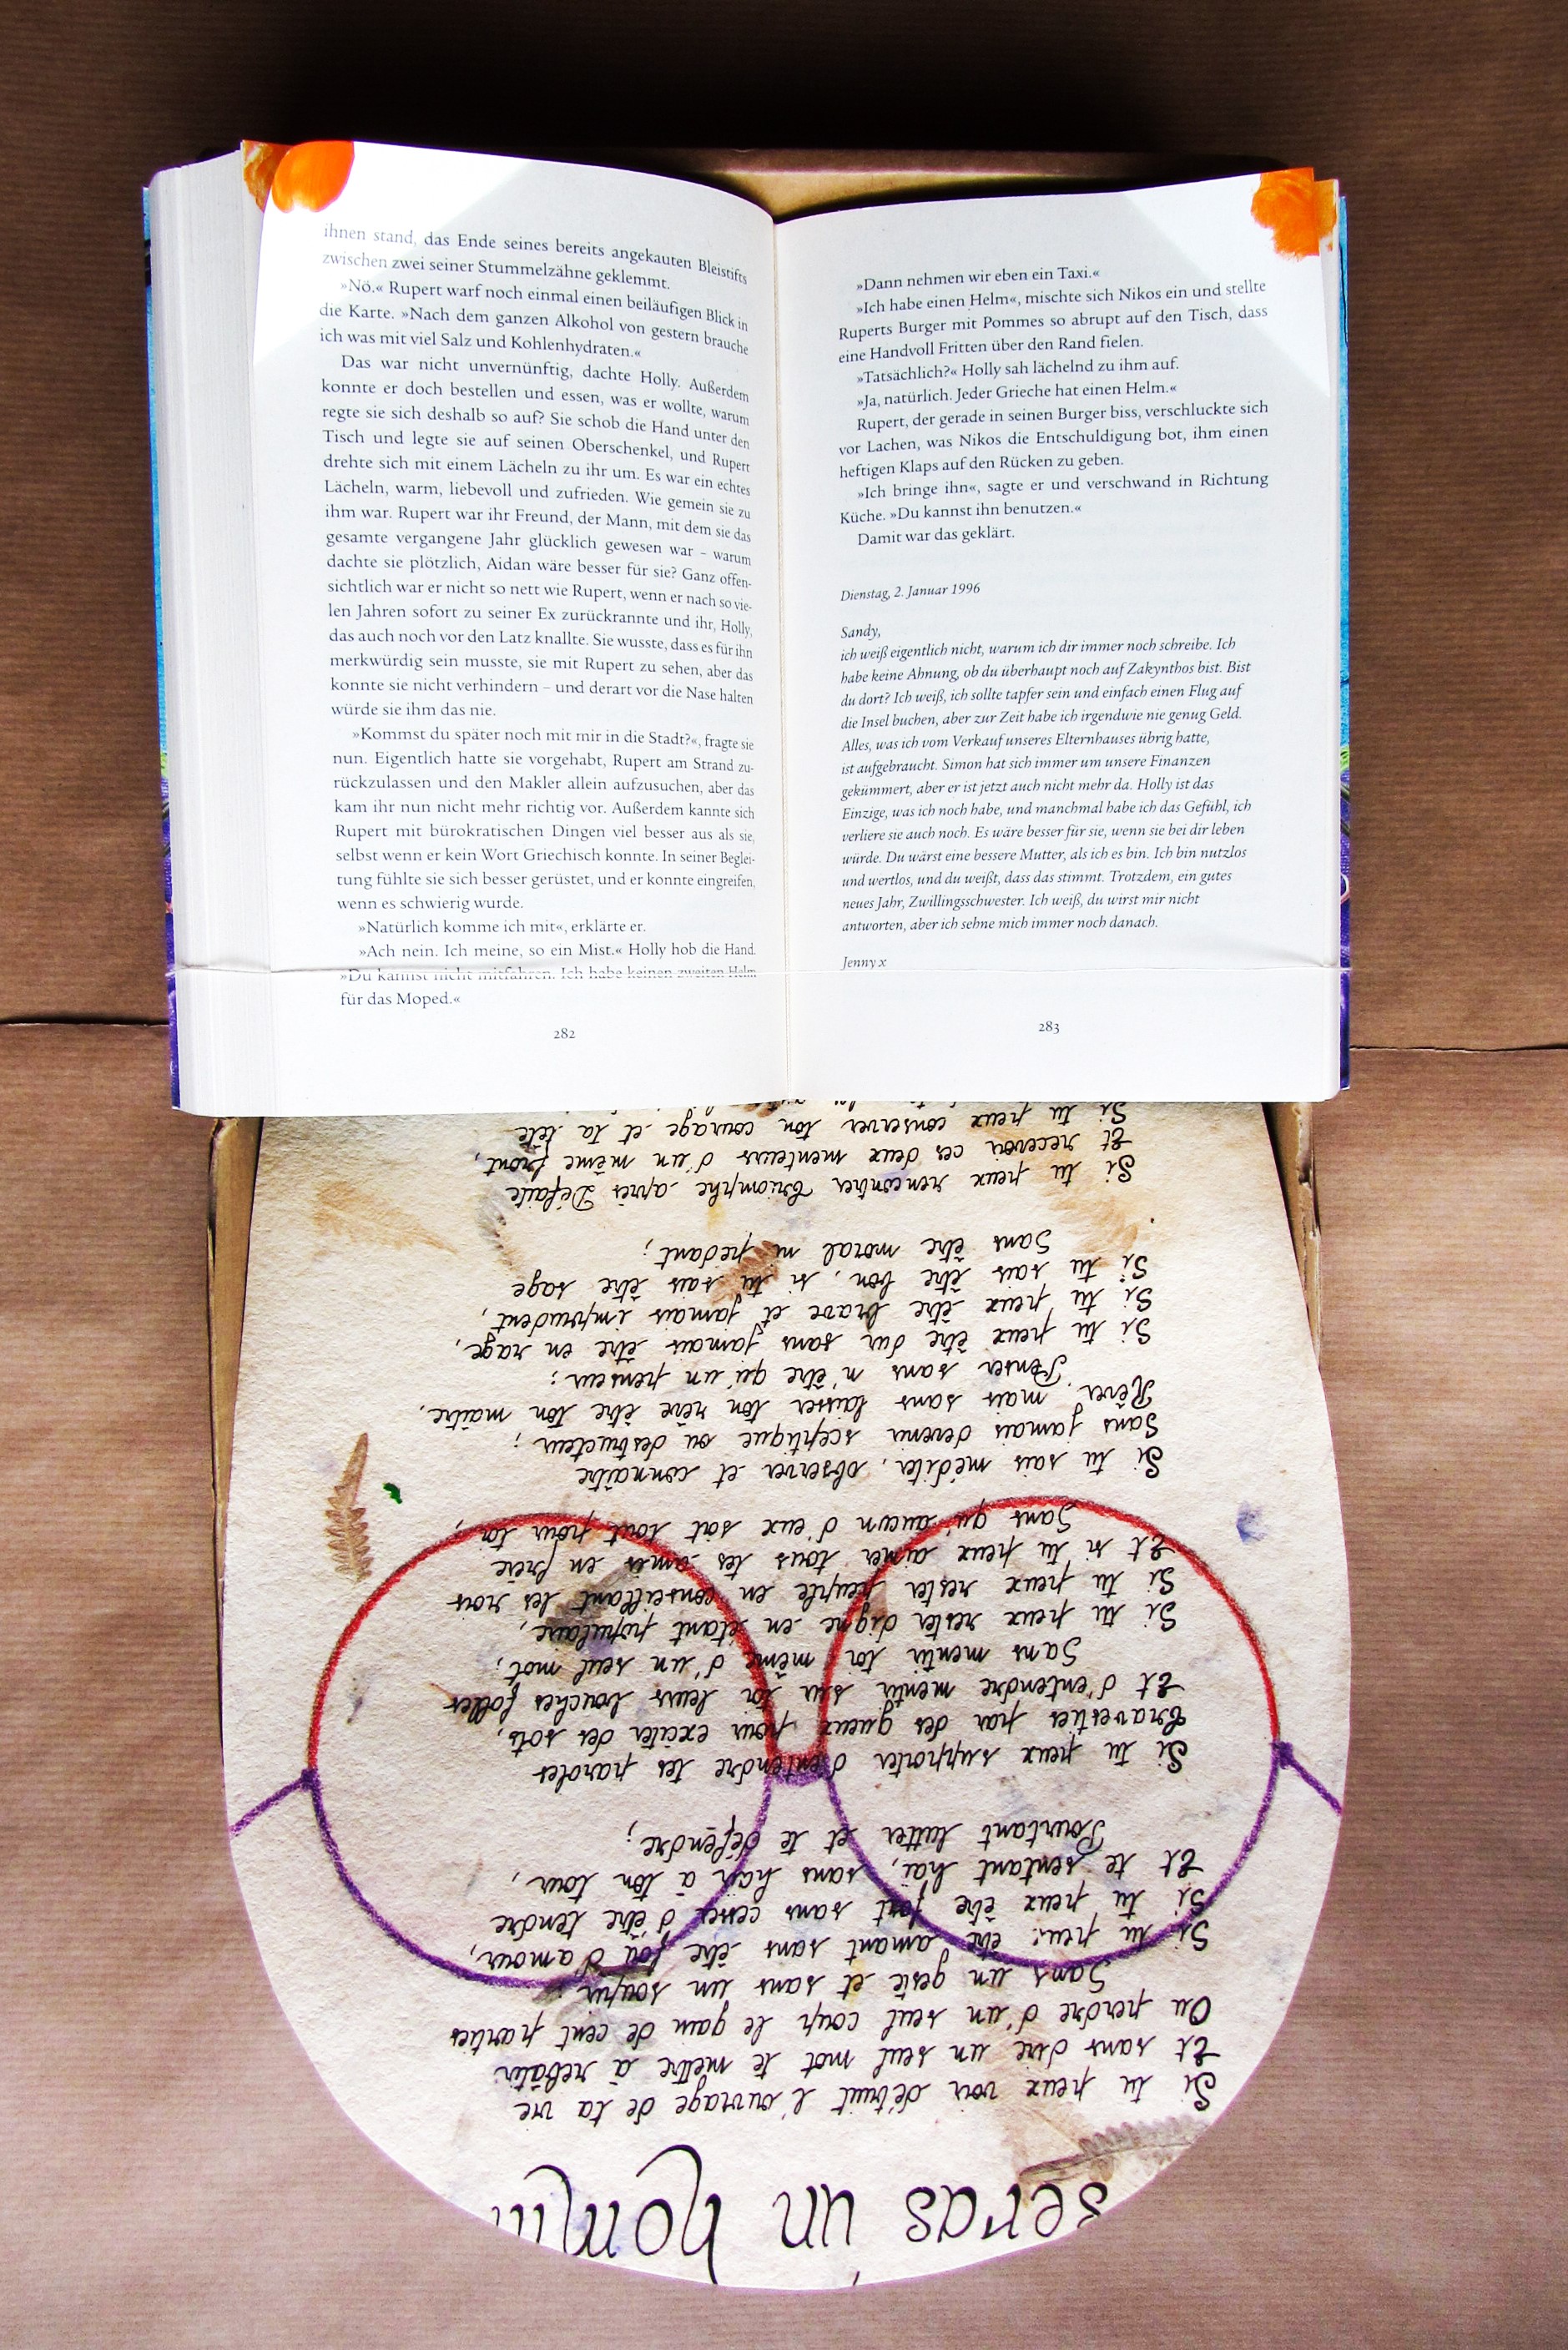 ihnen stand, das Ende seines bereits angekauten Bleistifts
zwischen zwei seiner Stummelzähne geklemmt.
»Nö.« Rupert warf noch einmal einen beiläufigen Blick in
die Karte. »Nach dem ganzen Alkohol von gestern brauche
ich was mit viel Salz und Kohlenhydraten.«
Das war nicht unvernünftig, dachte Holly. Außerdem
konnte er doch bestellen und essen, was er wollte, warum
regte sie sich deshalb so auf? Sie schob die Hand unter den
Tisch und legte sie auf seinen Oberschenkel, und Rupert
drehte sich mit einem Lächeln zu ihr um. Es war ein echtes
Lächeln, warm, liebevoll und zufrieden. Wie gemein sie zu
ihm war. Rupert war ihr Freund, der Mann, mit dem sie das
gesamte vergangene Jahr glücklich gewesen war – warum
dachte sie plötzlich, Aidan wäre besser für sie? Ganz offen-
sichtlich war er nicht so nett wie Rupert, wenn er nach so vie-
len Jahren sofort zu seiner Ex zurückrannte und ihr, Holly,
das auch noch vor den Latz knallte. Sie wusste, dass es für ihn
merkwürdig sein musste, sie mit Rupert zu sehen, aber das
konnte sie nicht verhindern – und derart vor die Nase halten
würde sie ihm das nie.
»Kommst du später noch mit mir in die Stadt?«, fragte sie
nun. Eigentlich hatte sie vorgehabt, Rupert am Strand zu-
rückzulassen und den Makler allein aufzusuchen, aber das
kam ihr nun nicht mehr richtig vor. Außerdem kannte sich
Rupert mit bürokratischen Dingen viel besser aus als sie,
selbst wenn er kein Wort Griechisch konnte. In seiner Beglei-
tung fühlte sie sich besser gerüstet, und er konnte eingreifen,
wenn es schwierig wurde.
»Natürlich komme ich mit«, erklärte er.
»Ach nein. Ich meine, so ein Mist.« Holly hob die Hand.
»Du kannst nicht mitfahren. Ich habe keinen zweiten Helm
für das Moped.«
282
»Dann nehmen wir eben ein Taxi.«
»Ich habe einen Helm«, mischte sich Nikos ein und stellte
Ruperts Burger mit Pommes so abrupt auf den Tisch, dass
eine Handvoll Fritten über den Rand fielen.
»Tatsächlich?« Holly sah lächelnd zu ihm auf.
»Ja, natürlich. Jeder Grieche hat einen Helm.«
Rupert, der gerade in seinen Burger biss, verschluckte sich
vor Lachen, was Nikos die Entschuldigung bot, ihm einen
heftigen Klaps auf den Rücken zu geben.
»Ich bringe ihn«, sagte er und verschwand in Richtung
Küche. »Du kannst ihn benutzen.«
Damit war das geklärt.
Dienstag, 2. Januar 1996
Sandy,
ich weiß eigentlich nicht, warum ich dir immer noch schreibe. Ich
habe keine Ahnung, ob du überhaupt noch auf Zakynthos bist. Bist
du dort? Ich weiß, ich sollte tapfer sein und einfach einen Flug auf
die Insel buchen, aber zur Zeit habe ich irgendwie nie genug Geld.
Alles, was ich vom Verkauf unseres Elternhauses übrig hatte,
ist aufgebraucht. Simon hat sich immer um unsere Finanzen
gekümmert, aber er ist jetzt auch nicht mehr da. Holly ist das
Einzige, was ich noch habe, und manchmal habe ich das Gefühl, ich
verliere sie auch noch. Es wäre besser für sie, wenn sie bei dir leben
würde. Du wärst eine bessere Mutter, als ich es bin. Ich bin nutzlos
und wertlos, und du weißt, dass das stimmt. Trotzdem, ein gutes
neues Jahr, Zwillingsschwester. Ich weiß, du wirst mir nicht
antworten, aber ich sehne mich immer noch danach.
Jenny x
283
seras un homm
Si tu peux voir détruit l'ouvrage de ta vie
Et sans dire un seul mot te mettre à rebâtir
Ou perdre d'un seul coup le gain de cent parties
Sans un geste et sans un soupir ;
Si tu peux être amant sans être fou d'amour,
Si tu peux être fort sans cesser d'être tendre
Et te sentant haï, sans haïr à ton tour,
Pourtant lutter et te défendre ;
Si tu peux supporter d'entendre tes paroles
Travesties par des gueux pour exciter des sots,
Et d'entendre mentir sur toi leurs bouches folles
Sans mentir toi même d'un seul mot ;
Si tu peux rester digne en étant populaire,
Si tu peux rester peuple en conseillant les rois
Et si tu peux aimer tous tes amis en frère
Sans qu'aucun d'eux soit tout pour toi ;
Si tu sais méditer, observer et connaître
Sans jamais devenir sceptique ou destructeur ;
Rêver, mais sans laisser ton rêve être ton maître,
Penser sans n'être qu'un penseur ;
Si tu peux être dur sans jamais être en rage,
Si tu peux être brave et jamais imprudent,
Si tu sais être bon, si tu sais être sage
Sans être moral ni pédant ;
Si tu peux rencontrer Triomphe après Défaite
Et recevoir ces deux menteurs d'un même front,
Si tu peux conserver ton courage et ta tête